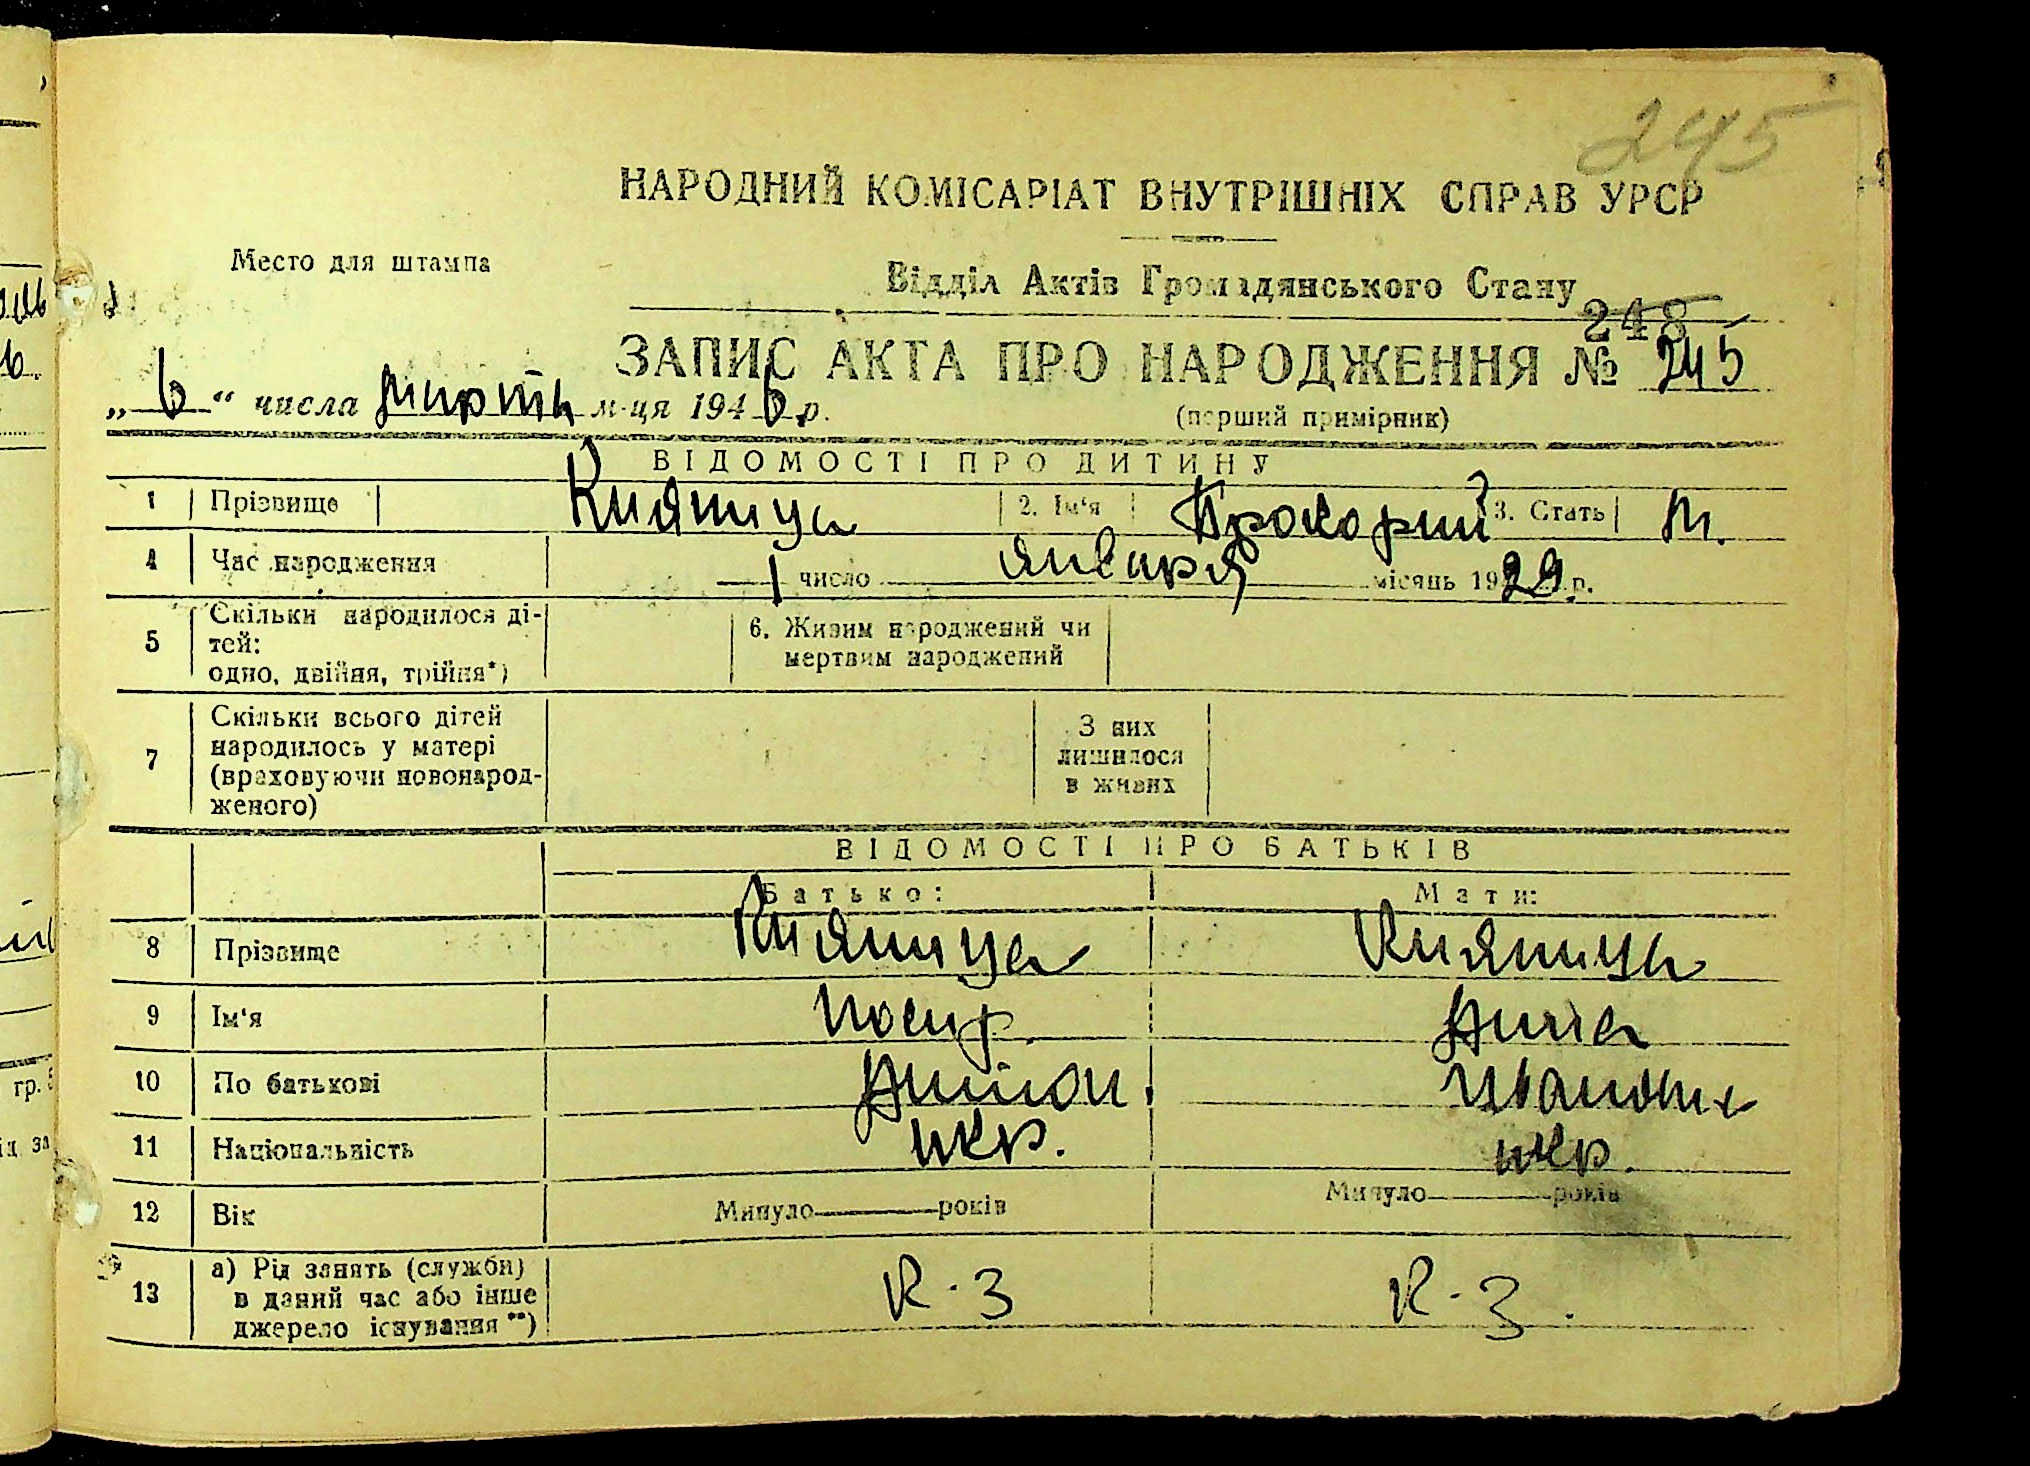 245
НАРОДНИЙ КОМІСАРІАТ ВНУТРІШНІХ СПРАВ УРСР
Место для штампа
Відділ Актів Громадянського Стану
248
ЗАПИС АКТА ПРО НАРОДЖЕННЯ № 245
„ 6 “ числа марта м-ця 1946 р.
(перший примірник)
ВІДОМОСТІ ПРО ДИТИНУ
1 Прізвище Княтица 2. Ім'я Прокорий 3. Стать м.
4 Час народження 1 число января місяць 1929 р.
5 Скільки народилося ді-
тей:
одно, двійня, трійня*)
6. Живим народжений чи
мертвим народжений
7 Скільки всього дітей
народилось у матері
(враховуючи новонарод-
женого)
З них
лишилося
в живих
ВІДОМОСТІ ПРО БАТЬКІВ
Батько: Мати:
8 Прізвище Княтица Княтица
9 Ім'я Анна
10 По батькові Антон.
11 Національність укр. укр.
12 Вік Минуло років Минуло років
13 а) Рід занять (служби)
в даний час або інше
джерело існування **)
К-З К-З.
гр.